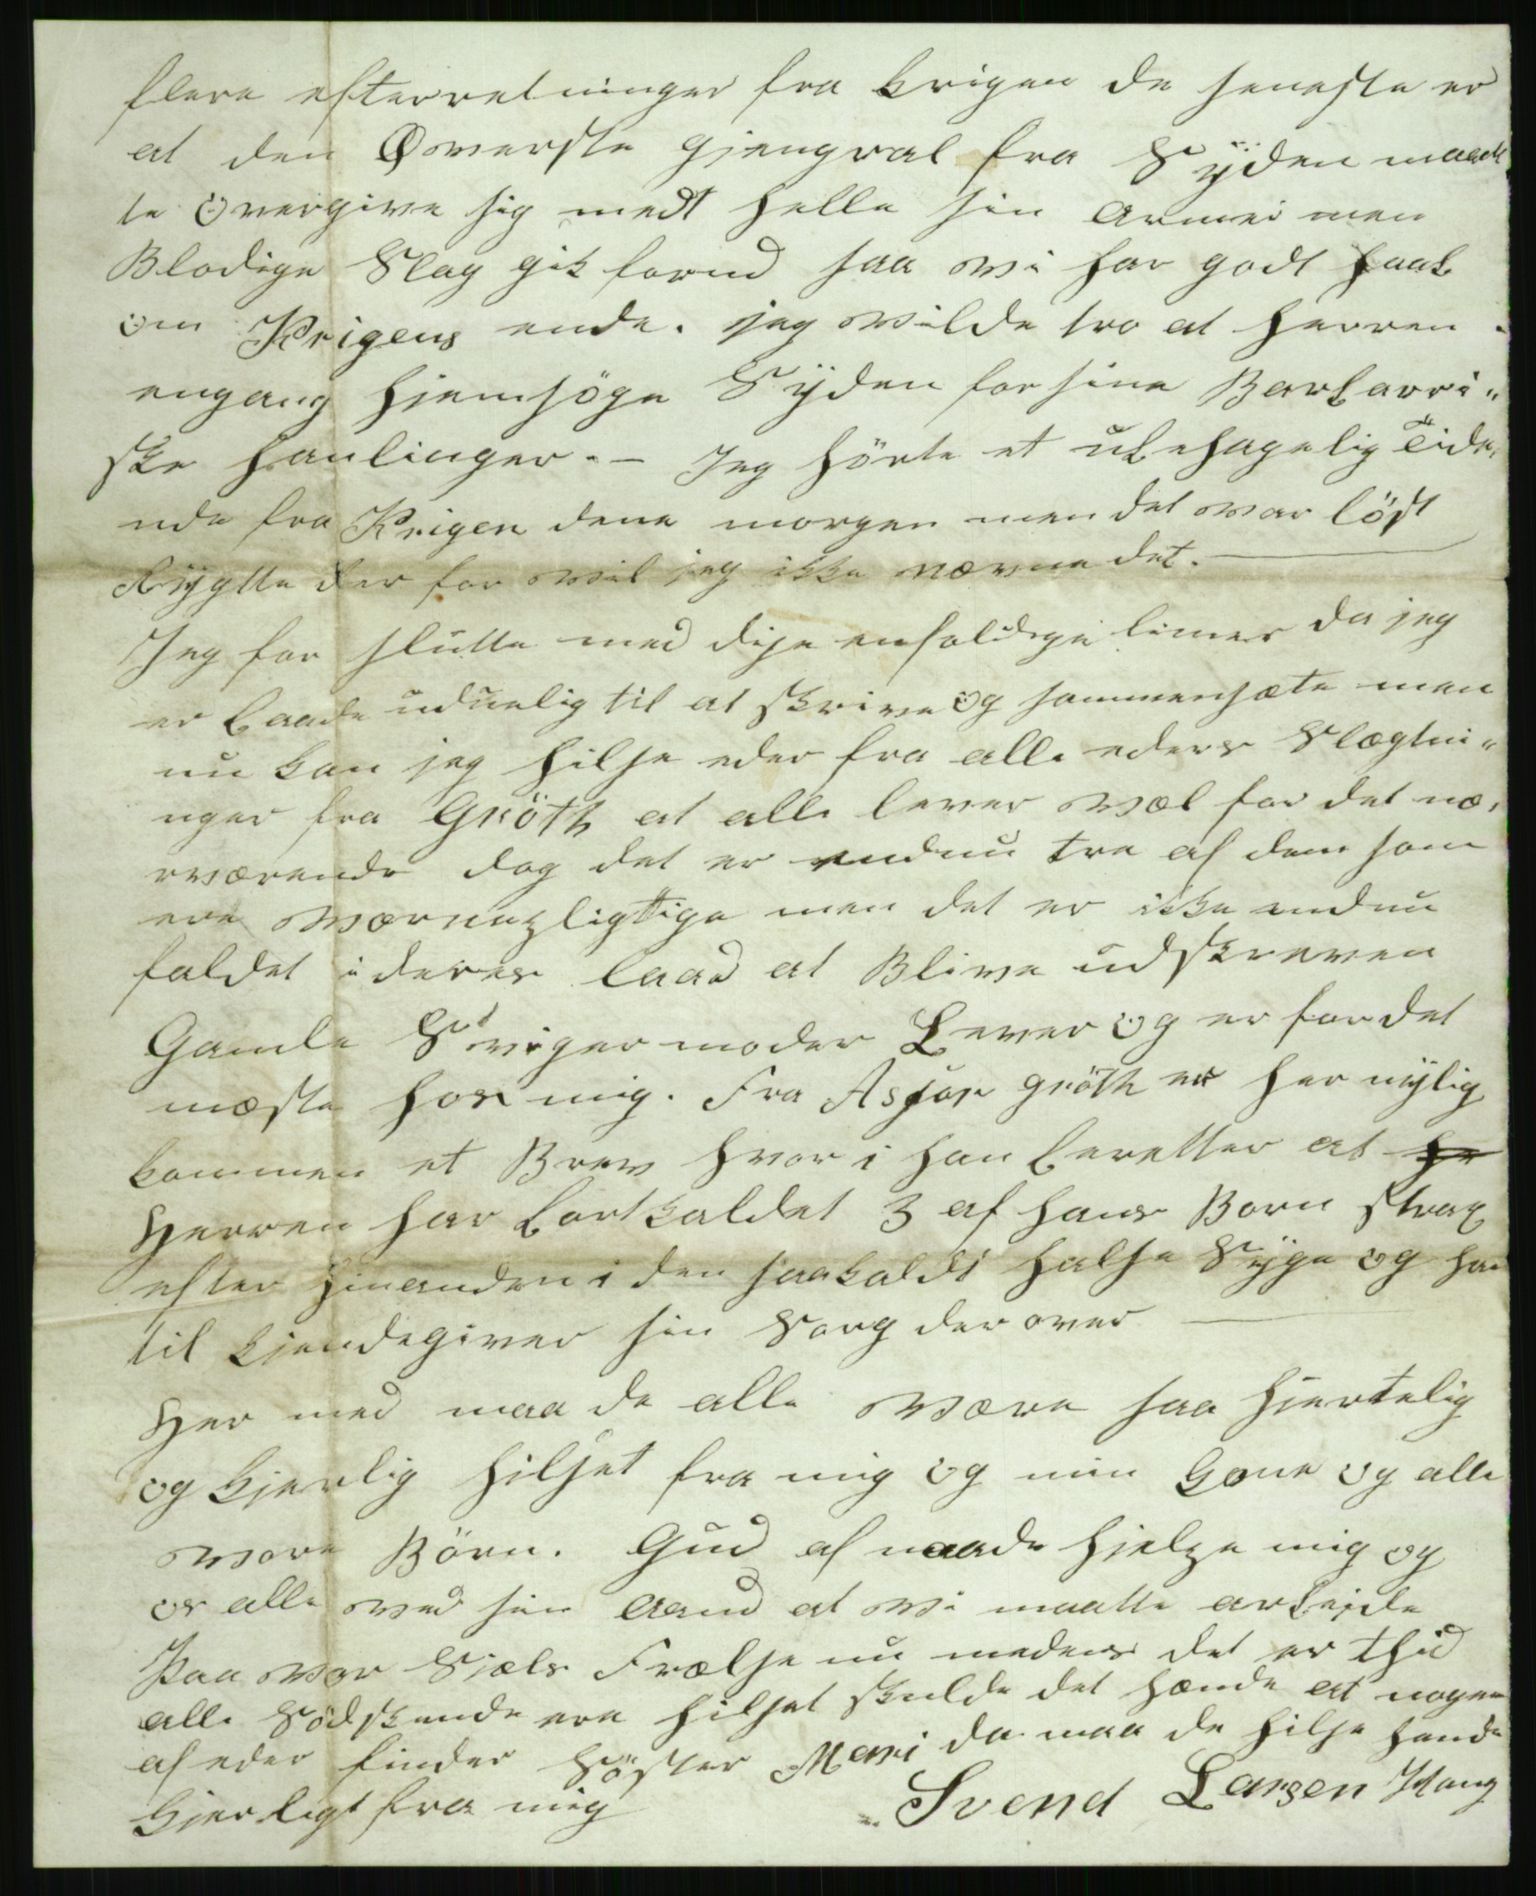 flere efterretninger fra krigen de seneste er
at den Øwerste Gjengral fra Syden maat
te övergive sig medt helle sin armei men
Blodige Slag gik forud saa wi har godt haab
om Krigens ende. jeg wilde tro at Herren
engang hjemsöge Syden for sine Barbarri„
ske hanlinger. — Jeg hörte et ubehagelig Tide,
nde fra Krigen dene morgen men det war löst
Rygtte der for wil jeg ikke nævne det. —
Jeg for slutte med dise enfoldige limer da jeg
er baade uduelig til at skrive og sammensæte men
nu kan jeg hilse eder fra alle eders Slægtni„
nger fra Gröth at alle lever wæl for det næ,
rværende dog det er endnu tre af dem som
ere wærnepligtige men det er ikke endnu
faldet i deres laad at Blive udskreven
Gamle Sviger moder Lever og er for det
mæste hos mig. Fra Asjør gröth er her nylig
kommen et Brew hvor i han beretter at
Herren har bortkaldet 3 af hans Born strax
efter hinanden i den saakaldt halse Syge og han
til kjendegiver sin Sorg der over —
Her med maa de alle være saa hjertelig
og kjerlig hilset fra mig og min Gone og alle
wore Börn. Gud af naade hjelpe mig og
os alle wed sin aand at wi maatte arbejde
Paa wor Sjæls Frælse nu medens det er thid
alle Södskende ere hilset skulde det hænde at nogen
af eder finder Söster Mari da maa de hilse hende
kjerligt fra mig
Svend Larsen Houg